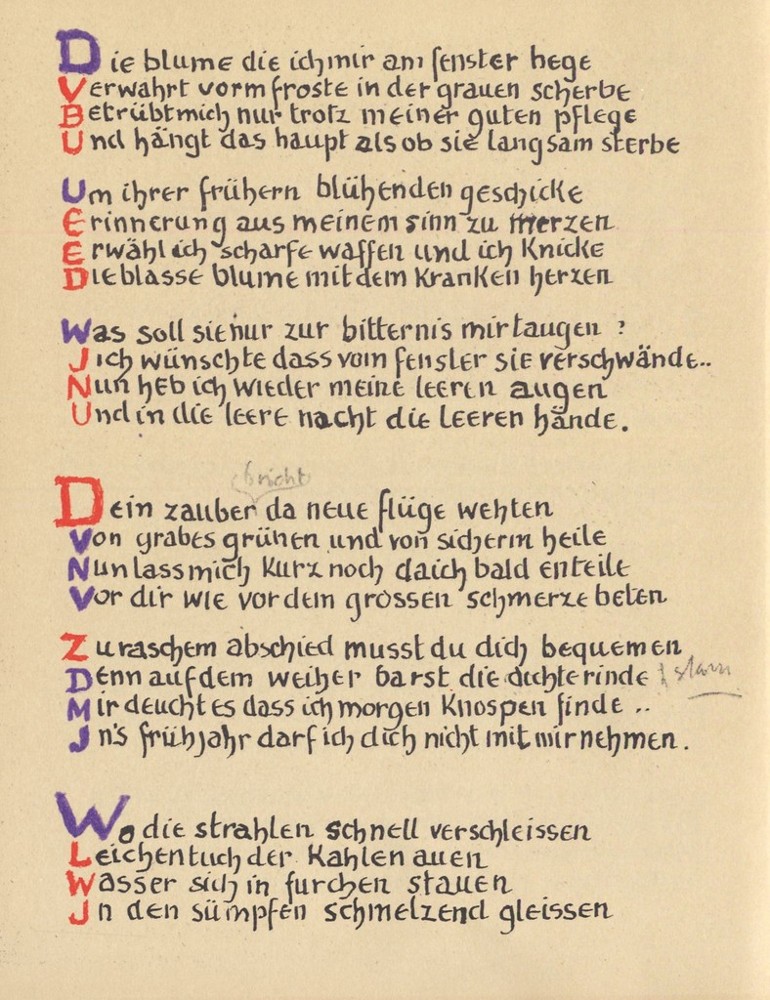 Die blume die ich mir am fenster hege
Verwahrt vorm froste in der grauen scherbe
Betrübt mich nur trotz meiner guten pflege
Und hängt das haupt als ob sie langsam sterbe
Um ihrer frühern blühenden geschicke
Erinnerung aus meinem sinn zu merzen
Erwähl ich scharfe waffen und ich knicke
Die blasse blume mit dem kranken herzen
Was soll sie nur zur bitternis mir taugen ?
Jch wünschte dass vom fenster sie verschwände..
Nun heb ich wieder meine leeren augen
Und in die leere nacht die leeren hände.
bricht
Dein zauber da neue flüge wehten
Von grabes grünen und von sicherm heile
Nun lass mich kurz noch da ich bald enteile
Vor dir wie vor dem grossen schmerze beten
Zu raschem abschied musst du dich bequemen
Denn auf dem weiher barst die dichte rinde
Mir deucht es dass ich morgen knospen finde ..
Jn's frühjahr darf ich dich nicht mit mir nehmen.
Wo die strahlen schnell verschleissen
Leichentuch der kahlen auen
Wasser sich in furchen stauen
Jn den sümpfen schmelzend gleissen